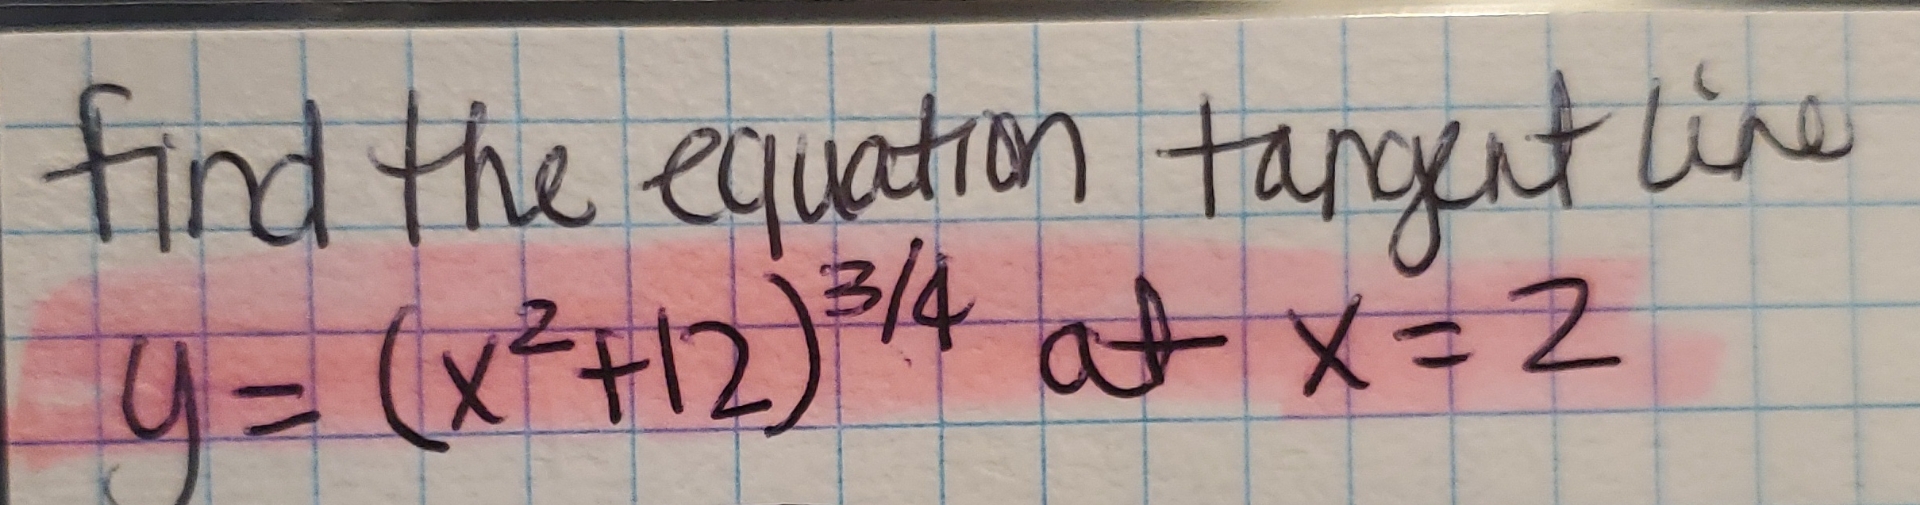 find the equation tangent line
y = (x²+12)^3/4 at x = 2